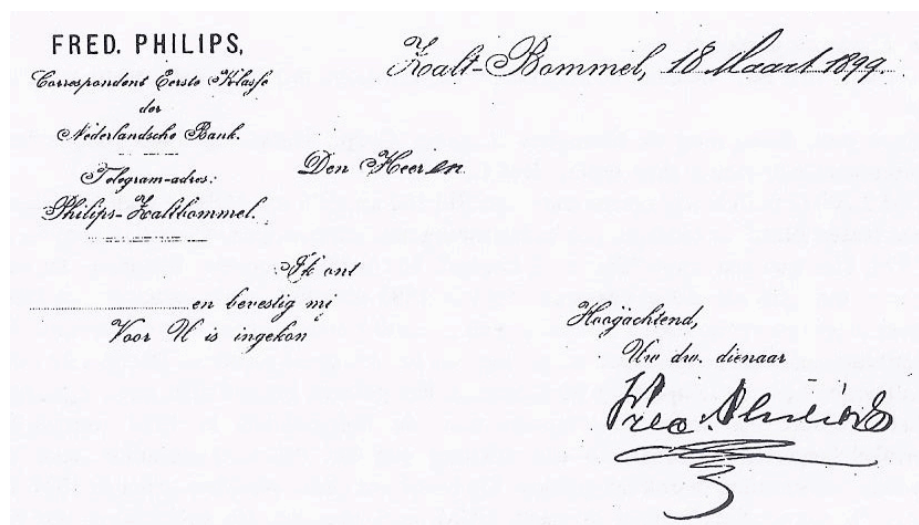 FRED. PHILIPS,
Correspondent Eerste Klasse
der
Nederlandsche Bank.
Telegram-adres:
Philips-Zaltbommel.
Zalt-Bommel, 18 Maart 1899.
Den Heeren
Ik ont
en bevestig mij
Voor U is ingekom
Hoogachtend,
Uw dw. dienaar
Fred. Philips